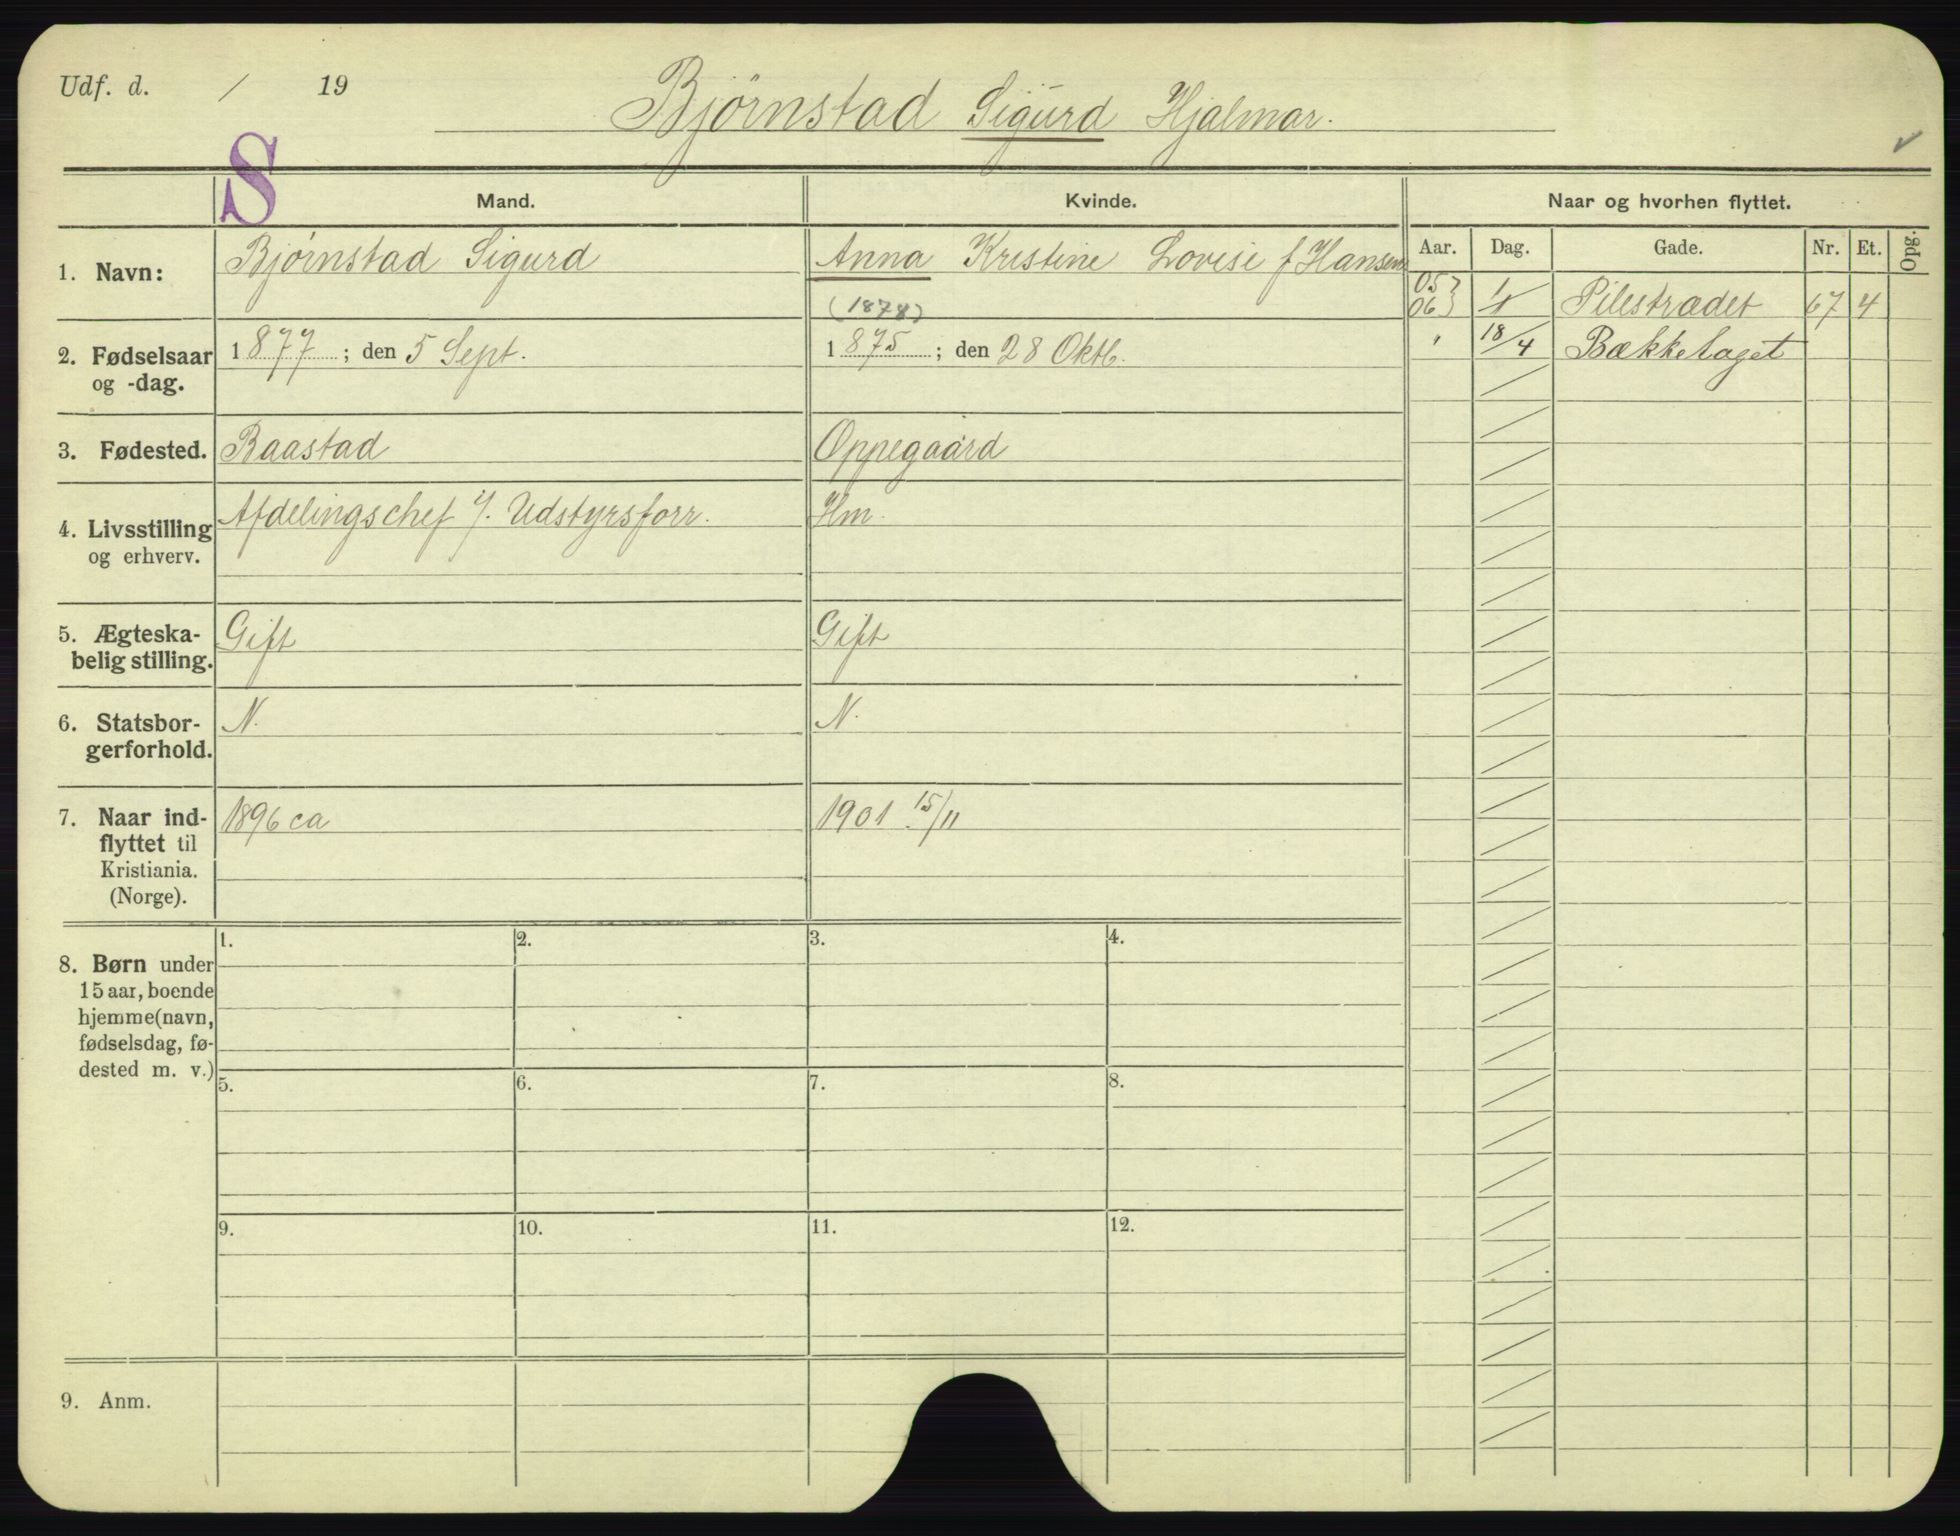 Udf. d. / 19
Bjørnstad Sigurd Hjalmar.
S
Mand. Kvinde. Naar og hvorhen flyttet.
Aar. Dag. Gade. Nr. Et. Opg.
1. Navn: Bjørnstad Sigurd Anna Kristine Lovise f Hansen
05} 06} 1/1 Pilestrædet 67 4
(1878)
2. Fødselsaar og -dag. 1877; den 5 Sept. 1875; den 28 Oktb.
" 18/4 Bækkelaget
3. Fødested. Baastad Oppegaard
4. Livsstilling og erhverv. Afdelingschef i/. Udstyrsforr. Hm.
5. Ægteska-
belig stilling. Gift Gift
6. Statsbor-
gerforhold. N. N.
7. Naar ind-
flyttet til
Kristiania.
(Norge). 1896 ca 1901 15/11
8. Børn under
15 aar, boende
hjemme (navn,
fødselsdag, fø-
dested m. v.)
1. 2. 3. 4.
5. 6. 7. 8.
9. 10. 11. 12.
9. Anm.